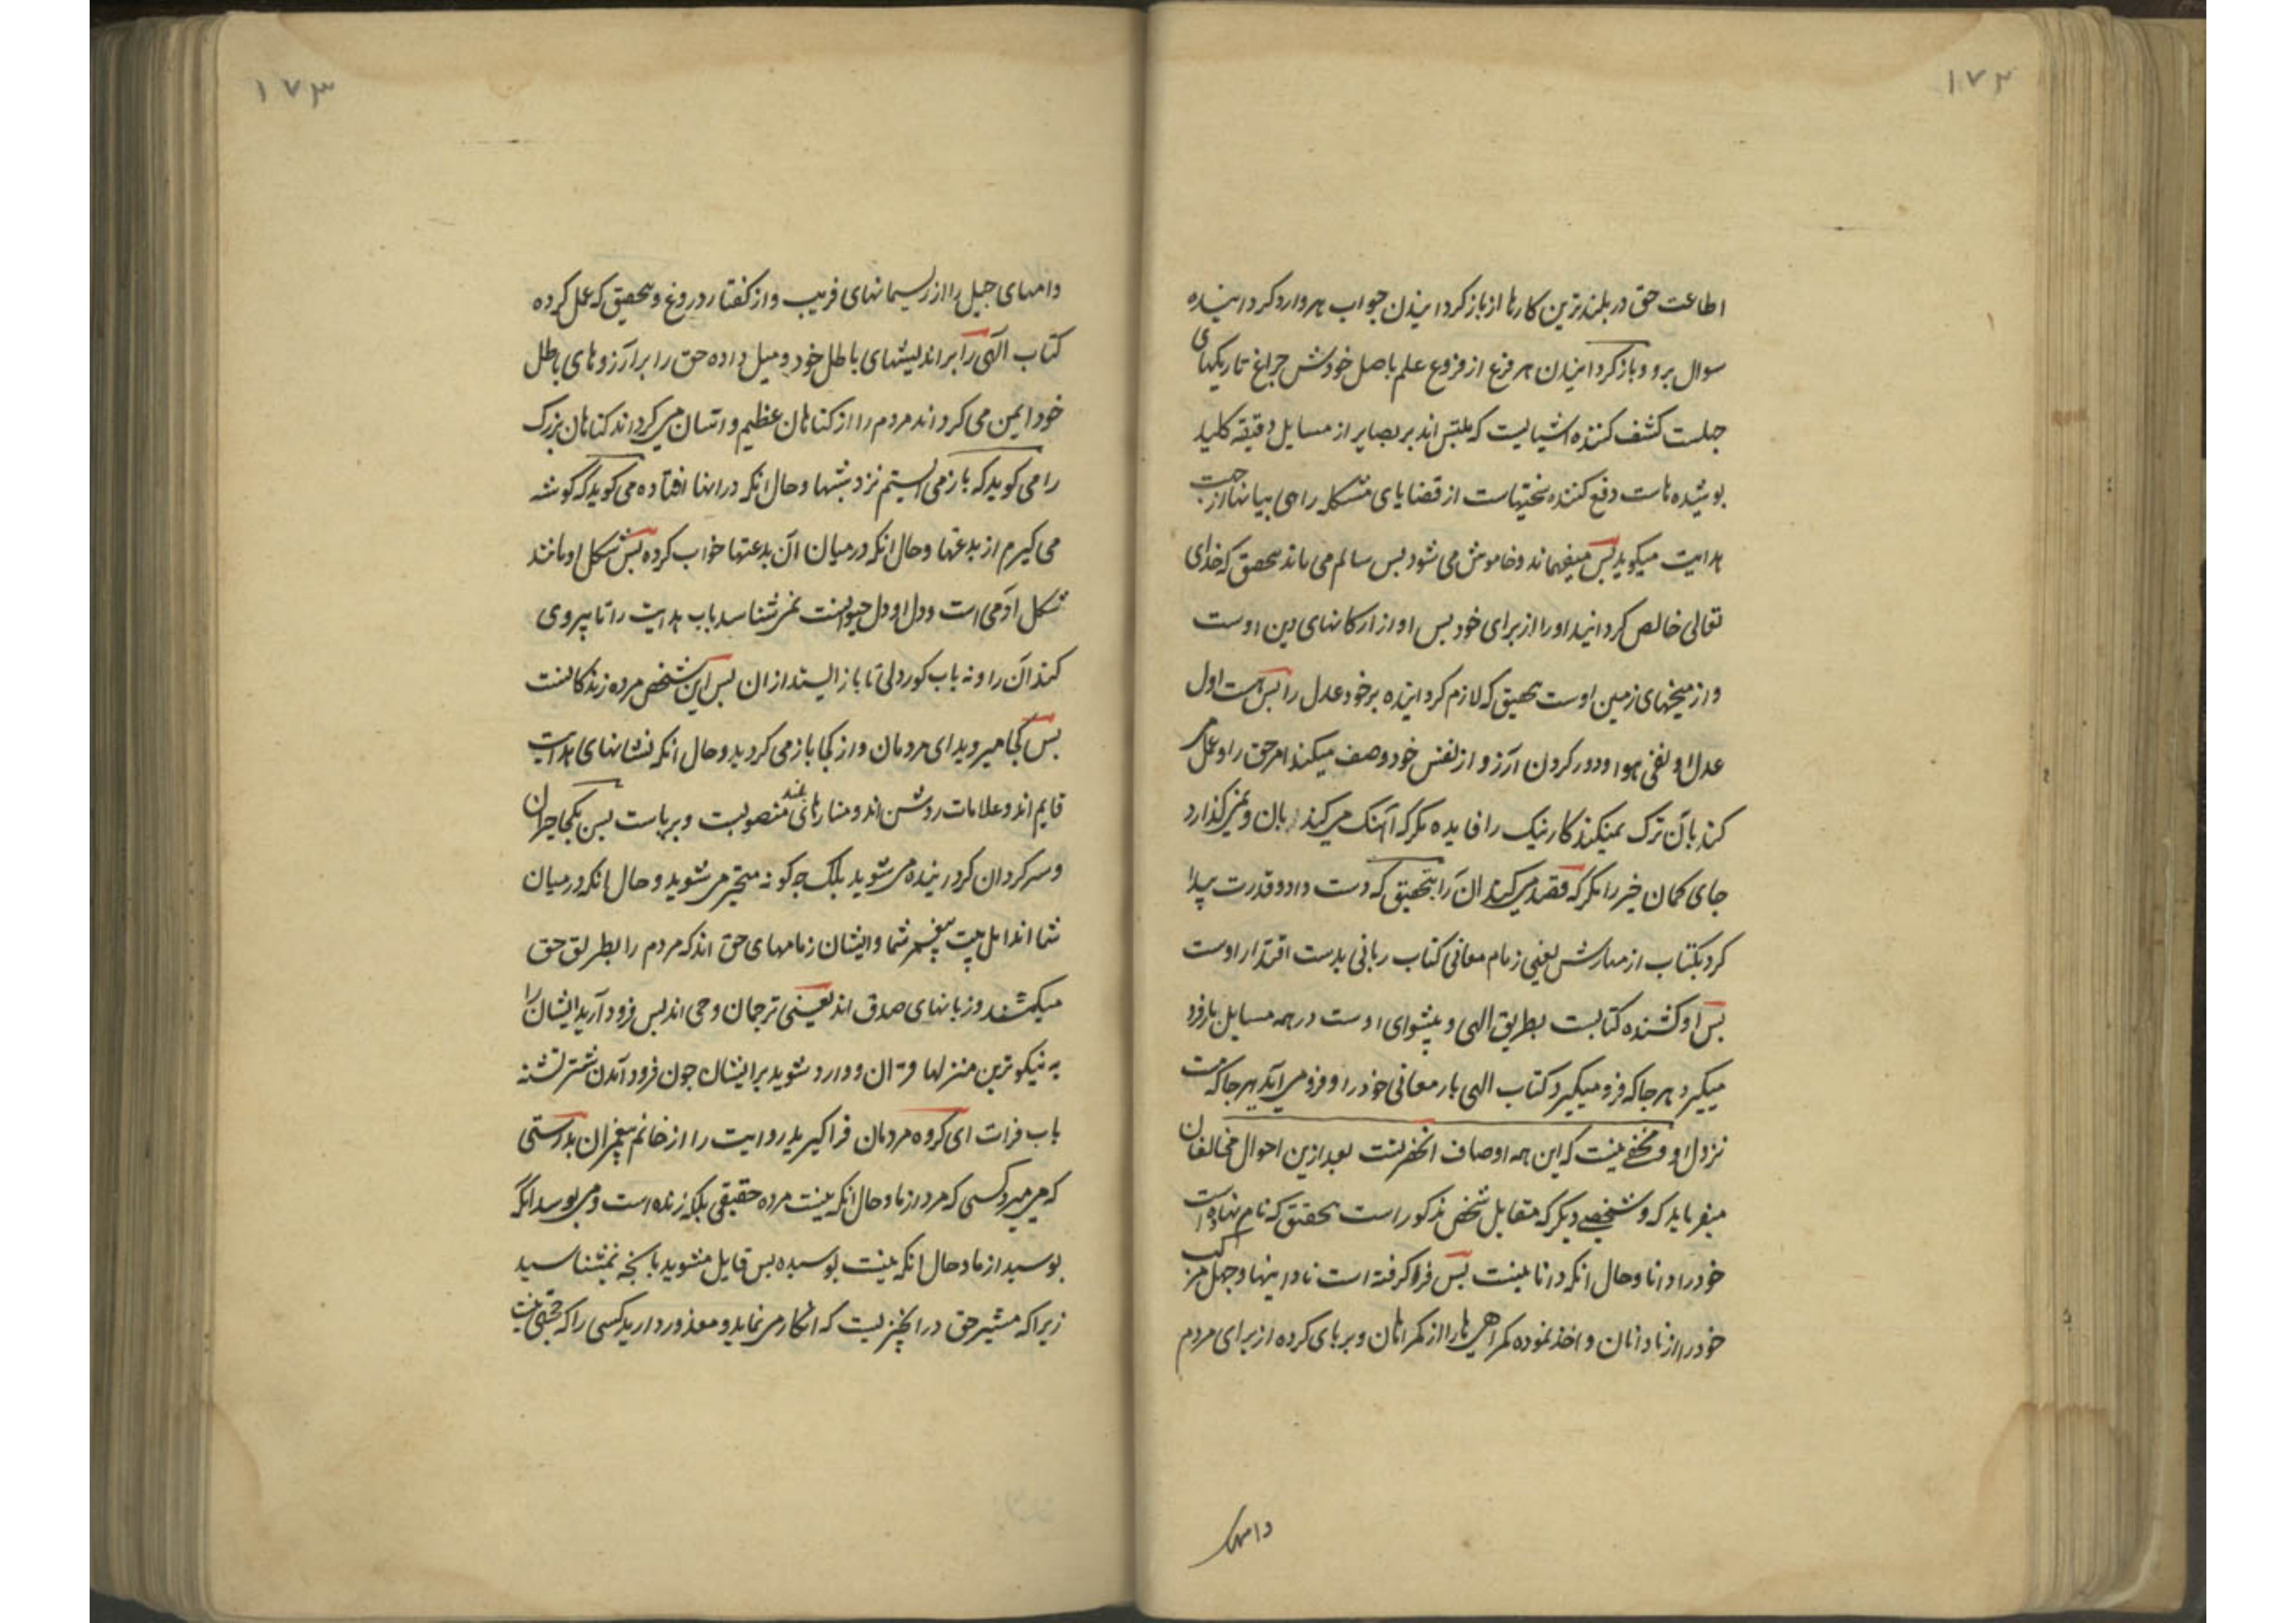 ۱۷۲
اطاعت حق در بلندترین کارها از باز کردانیدن جواب هر وارد کردانیده
سوال برو و باز کردانیدن هر فرع از فروع علم باصل خودش چراغ تاریکیهای
جهلست کشف کننده اشیائیست که ملتبس اند بر بصایر از مسایل دقیقه کلید
پوشیده هاست دفع کننده سختیهاست از قضایای مشکله راهی بیانها از جهت
هدایت میکوید پس میفهماند و خاموش می شود پس سالم می ماند بتحقیق که خدای
تعالی خالص کردانید او را از برای خود پس او از ارکانهای دین اوست
و از میخهای زمین اوست بتحقیق که لازم کردانیده بر خود عدل را پس است اول
عدل او نفی هوا و دور کردن آرزو از نفس خود وصف میکند امر حق را و عمل می
کند بآن ترک نمیکند کار نیک را فایده مکر که آهنک می کند بآن و نمی کذارد
جای کمان خیر را مکر که قصد می کند آن را بتحقیق که دست داد و قدرت پیدا
کرد بکتاب از مهارش یعنی زمام معانی کتاب ربانی بدست اقتدار اوست
پس او کشنده کتابست بطریق الهی و پیشوای اوست در همه مسایل بار فرو
میکیرد هر جا که فرو میکیرد کتاب الهی بار معانی خود را و فرو می آید هر جا که هست
نزول او و مخفی نیست که این همه اوصاف آنحضرتست بعد ازین احوال مخالفان
میفرماید که و شخصی دیکر که متقابل شخص مذکور است بتحقیق که نام نهاده است
خود را دانا و حال انکه دانا نیست پس فرا کرفته است نادانیها و جهل مرکب
خود را از نادانان و اخذ نموده کمراهی ها را از کمراهان و بر پای کرده از برای مردم
دامهای
۱۷۳
دامهای حیل را از ریسمانهای فریب و از کفتار دروغ و بتحقیق که حمل کرده
کتاب آلهی را بر اندیشهای باطل خود و میل داده حق را بر آرزوهای باطل
خود ایمن می کرداند مردم را از کناهان عظیم و آسان می کرداند کناهان بزرک
را می کوید که باز می ایستم نزد شبهها و حال انکه در انها افتاده می کوید که کوشه
می کیرم از بدعتها و حال انکه در میان آن بدعتها خواب کرده پس شکل او مانند
شکل آدمی است و دل او دل حیوانست نمی شناسد باب هدایت را تا پیروی
کند آن را و نه باب کوردلی تا باز ایستد از ان پس این شخص مرده زندکانست
پس کجا میروید ای مردمان و از کجا باز می کردید و حال انکه نشانهای هدایت
قایم اند و علامات روشن اند و منارهای منصوبست و برپاست پس بکجا حیران
و سرکردان کردانیده می شوید بلکه چکونه متحیر می شوید و حال انکه در میان
شما اند اهل بیت پیغمبر شما و ایشان زمامهای حق اند که مردم را بطریق حق
میکشند و زبانهای صدق اند یعنی ترجمان وحی اند پس فرود آرید ایشان را
به نیکوترین منزلها قرآن و وارد شوید بر ایشان چون فرود آمدن شتر تشنه
باب فرات ای کروه مردمان فرا کیرید روایت را از خاتم پیغمبران بدرستی
که می میرد کسی که مرد از ما و حال انکه نیست مرده حقیقی بلکه زنده است و می پوسد انکه
پوسید از ما و حال انکه نیست پوسیده پس قایل مشوید بانچه نمیشناسید
زیرا که بیشتر حق در انچیز یست که انکار می نماید و معذور دارید کسی را که حجتی نیست